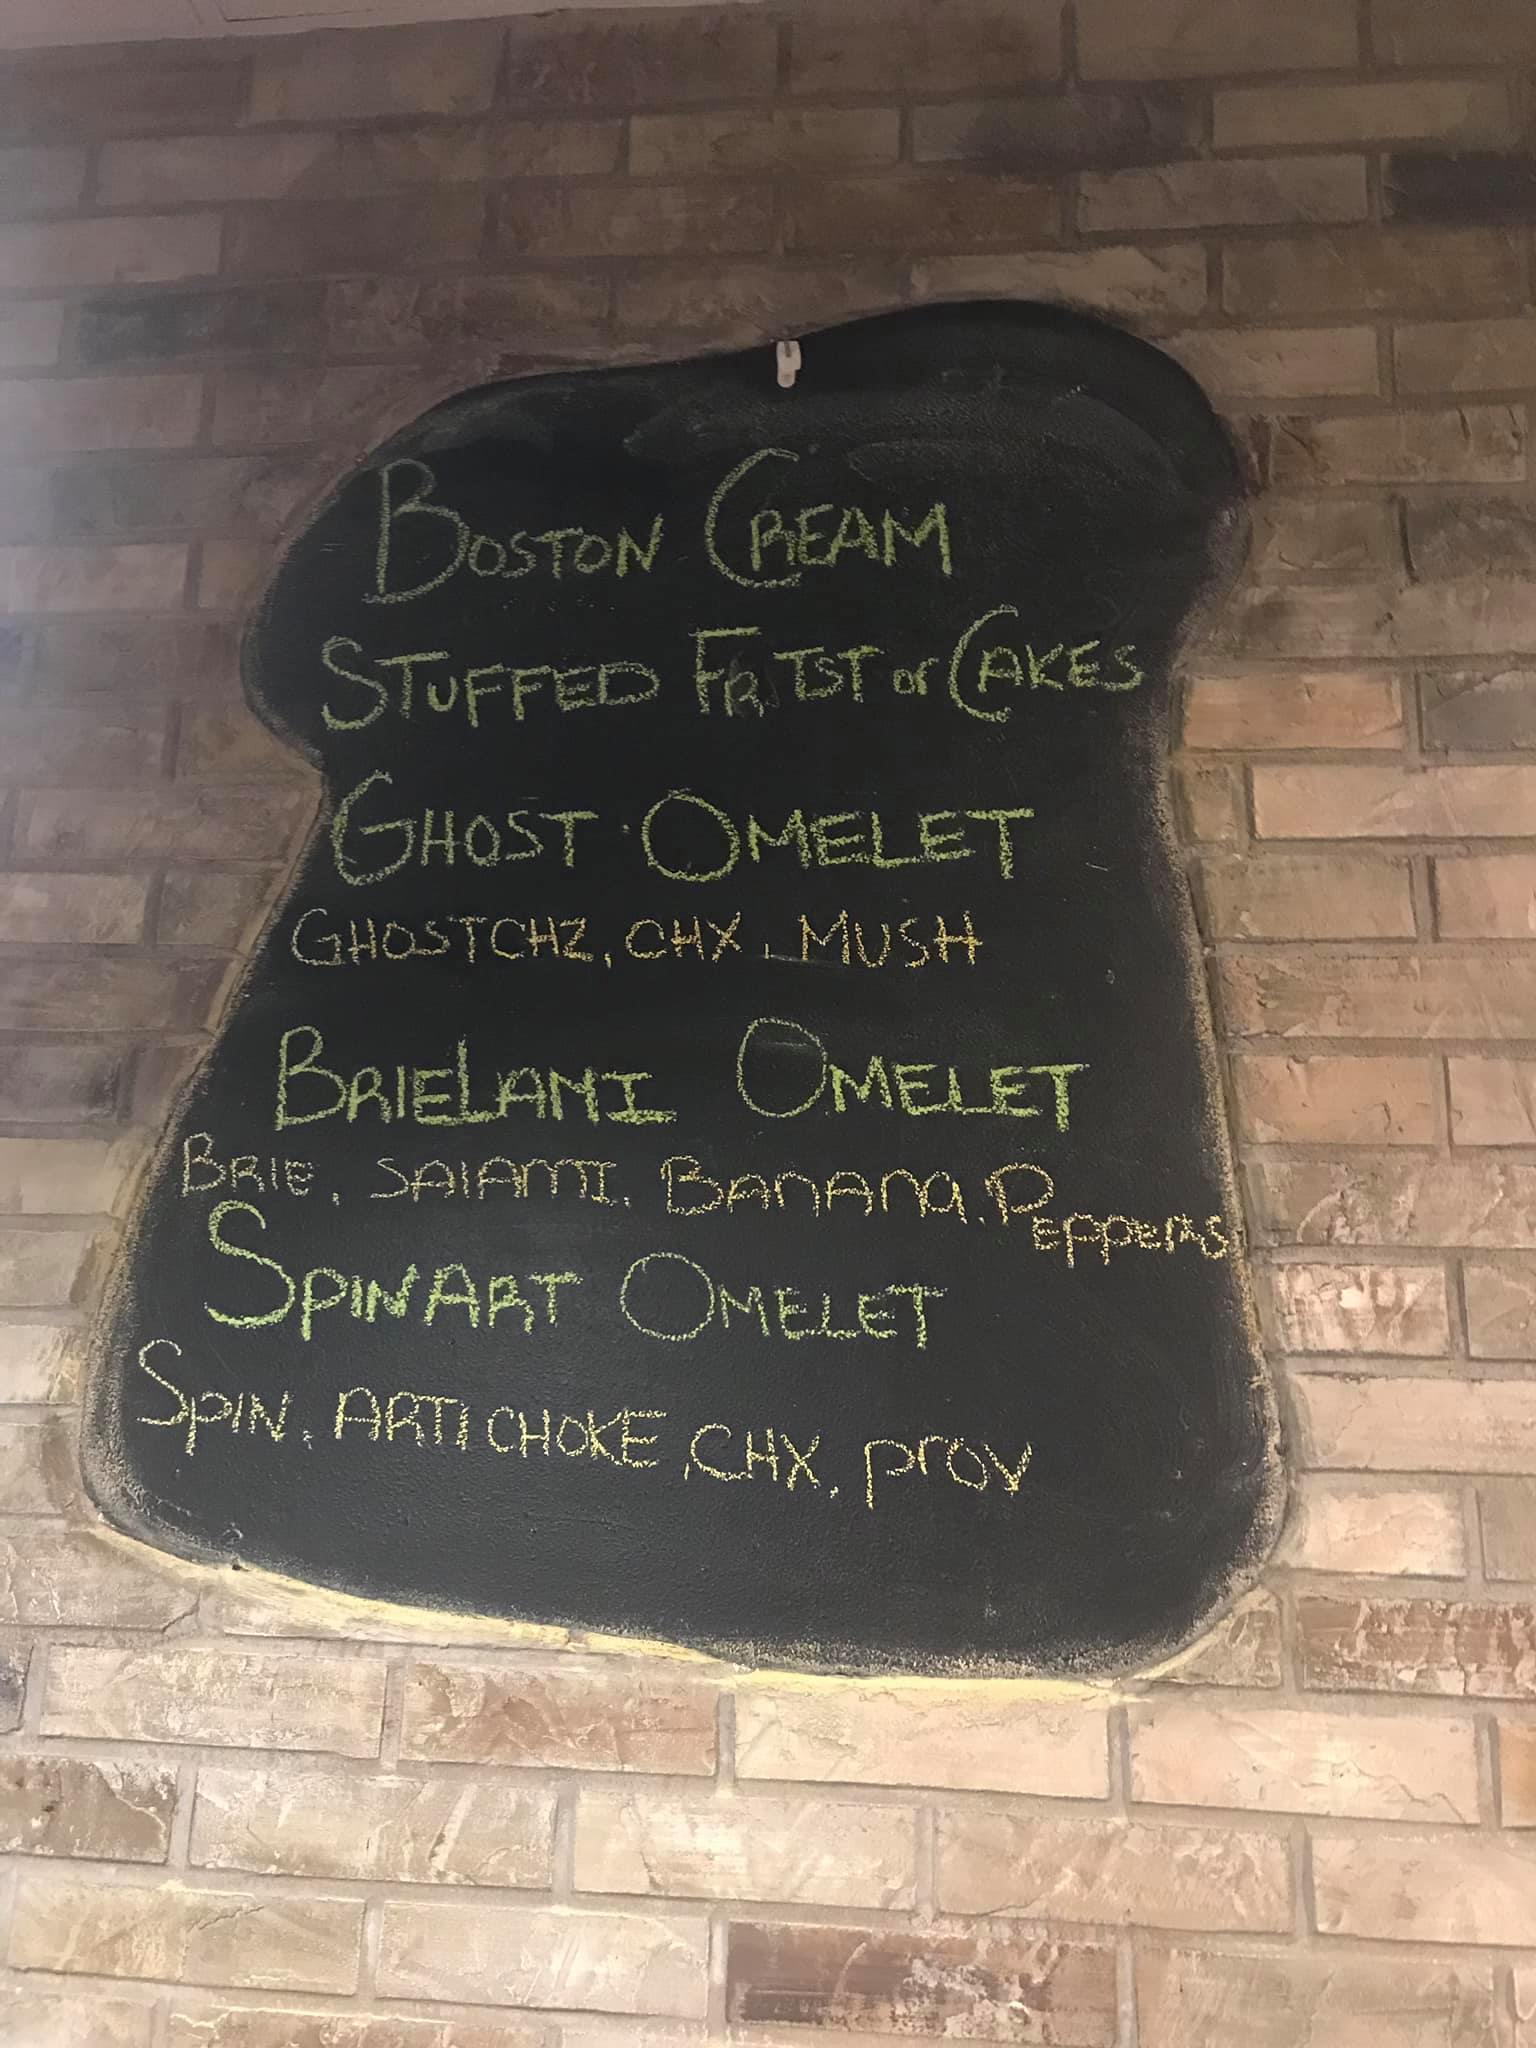 BOSTON CREAM
STUFFED FR. TST or CAKES
GHOST OMELET
GHOSTCHZ, CHX, MUSH
BRIELAMI OMELET
BRIE, SAlAMI, BANANA PEPPERS
SPINART OMELET
SPIN, ARTICHOKE, CHX, prov